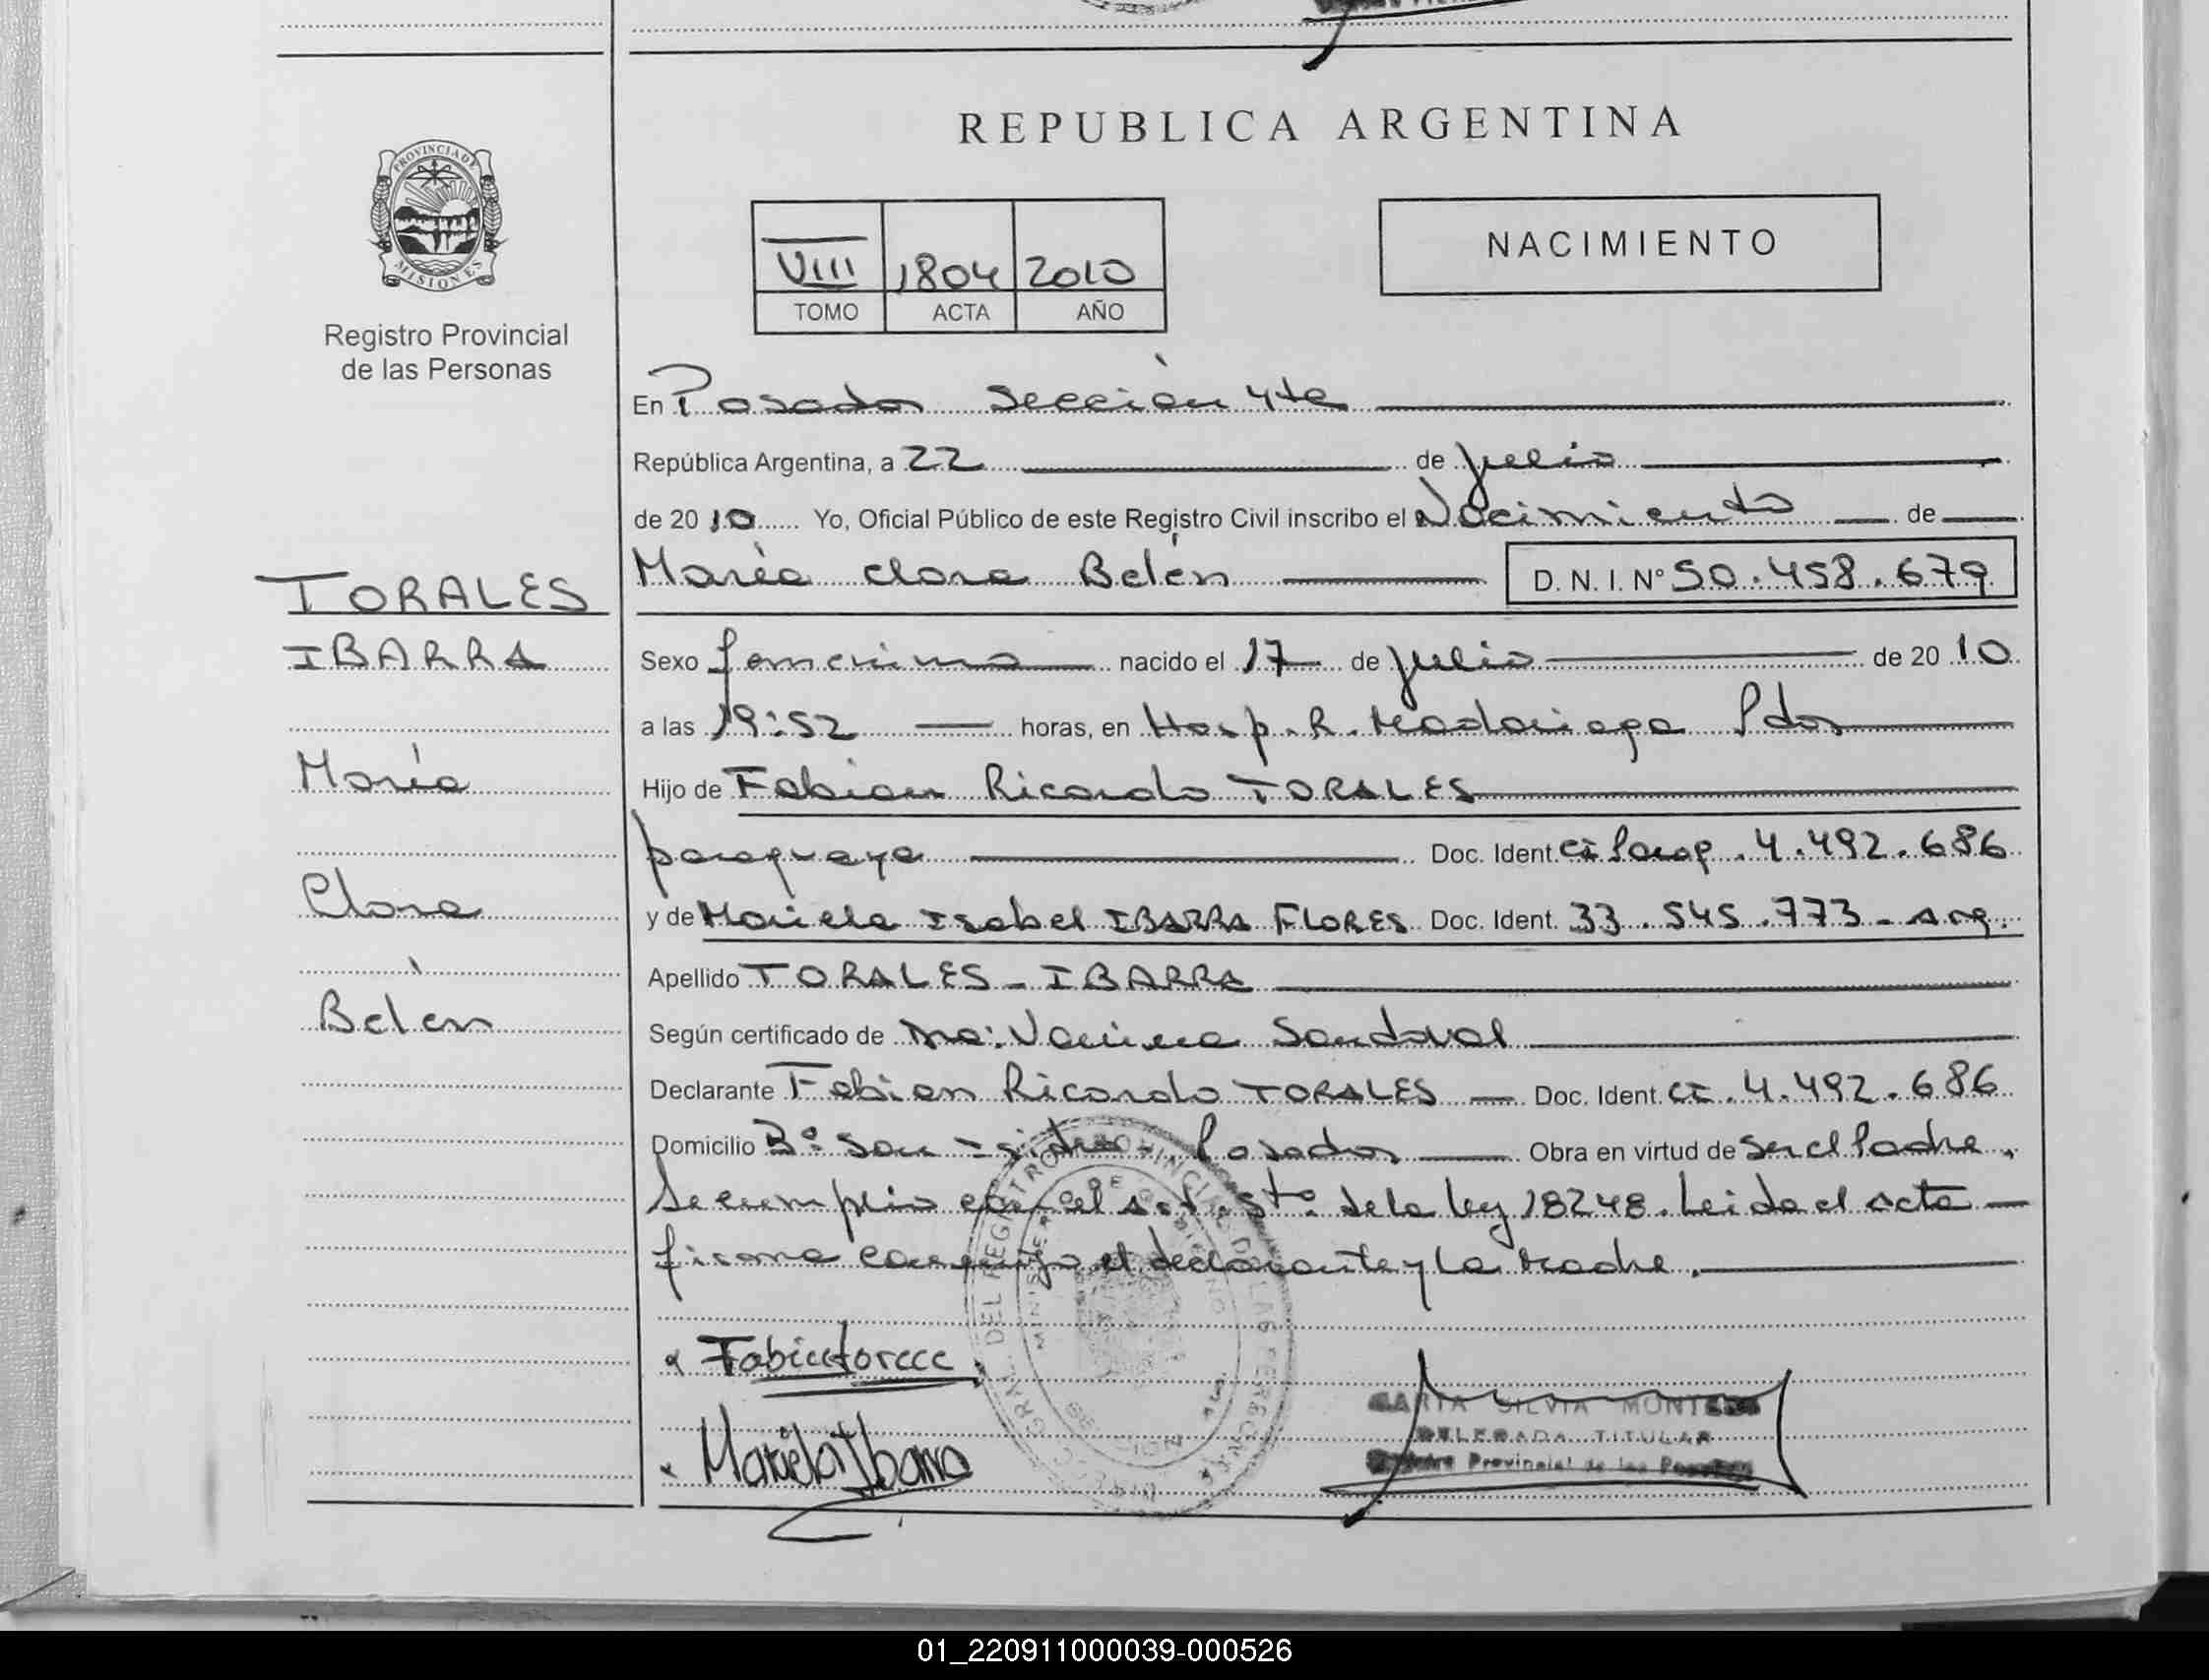 REPUBLICA ARGENTINA
PROVINCIA DE
MISIONES
Registro Provincial
de las Personas
VIII 1804 2010
TOMO ACTA AÑO
NACIMIENTO
En Posadas Sección 4ta
República Argentina, a 22 de julio
de 2010 Yo, Oficial Público de este Registro Civil inscribo el Nacimiento de
María Clara Belén D.N.I. Nº 50.458.679
TORALES
IBARRA
María
Clara
Belén
Sexo femenino nacido el 17 de julio de 2010
a las 19:52 horas, en Hosp. R. Madariaga Pdas
Hijo de Fabian Ricardo TORALES
paraguaya Doc. Ident. CI Parag. 4.492.686
y de Mariela Isabel IBARRA FLORES Doc. Ident. 33.545.773 - Arg.
Apellido TORALES - IBARRA
Según certificado de Dra: Vanina Sandoval
Declarante Fabian Ricardo TORALES Doc. Ident. CI. 4.492.686
Domicilio Bº San Isidro - Posadas Obra en virtud de ser el Padre.
Se cumplio con el Art. 5to. de la ley 18248. Leida el acta
firma conmigo el declarante y la madre.
Mariela Ibarra
SILVIA
DELEGADA TITULAR
Provincial de las
01_220911000039-000526